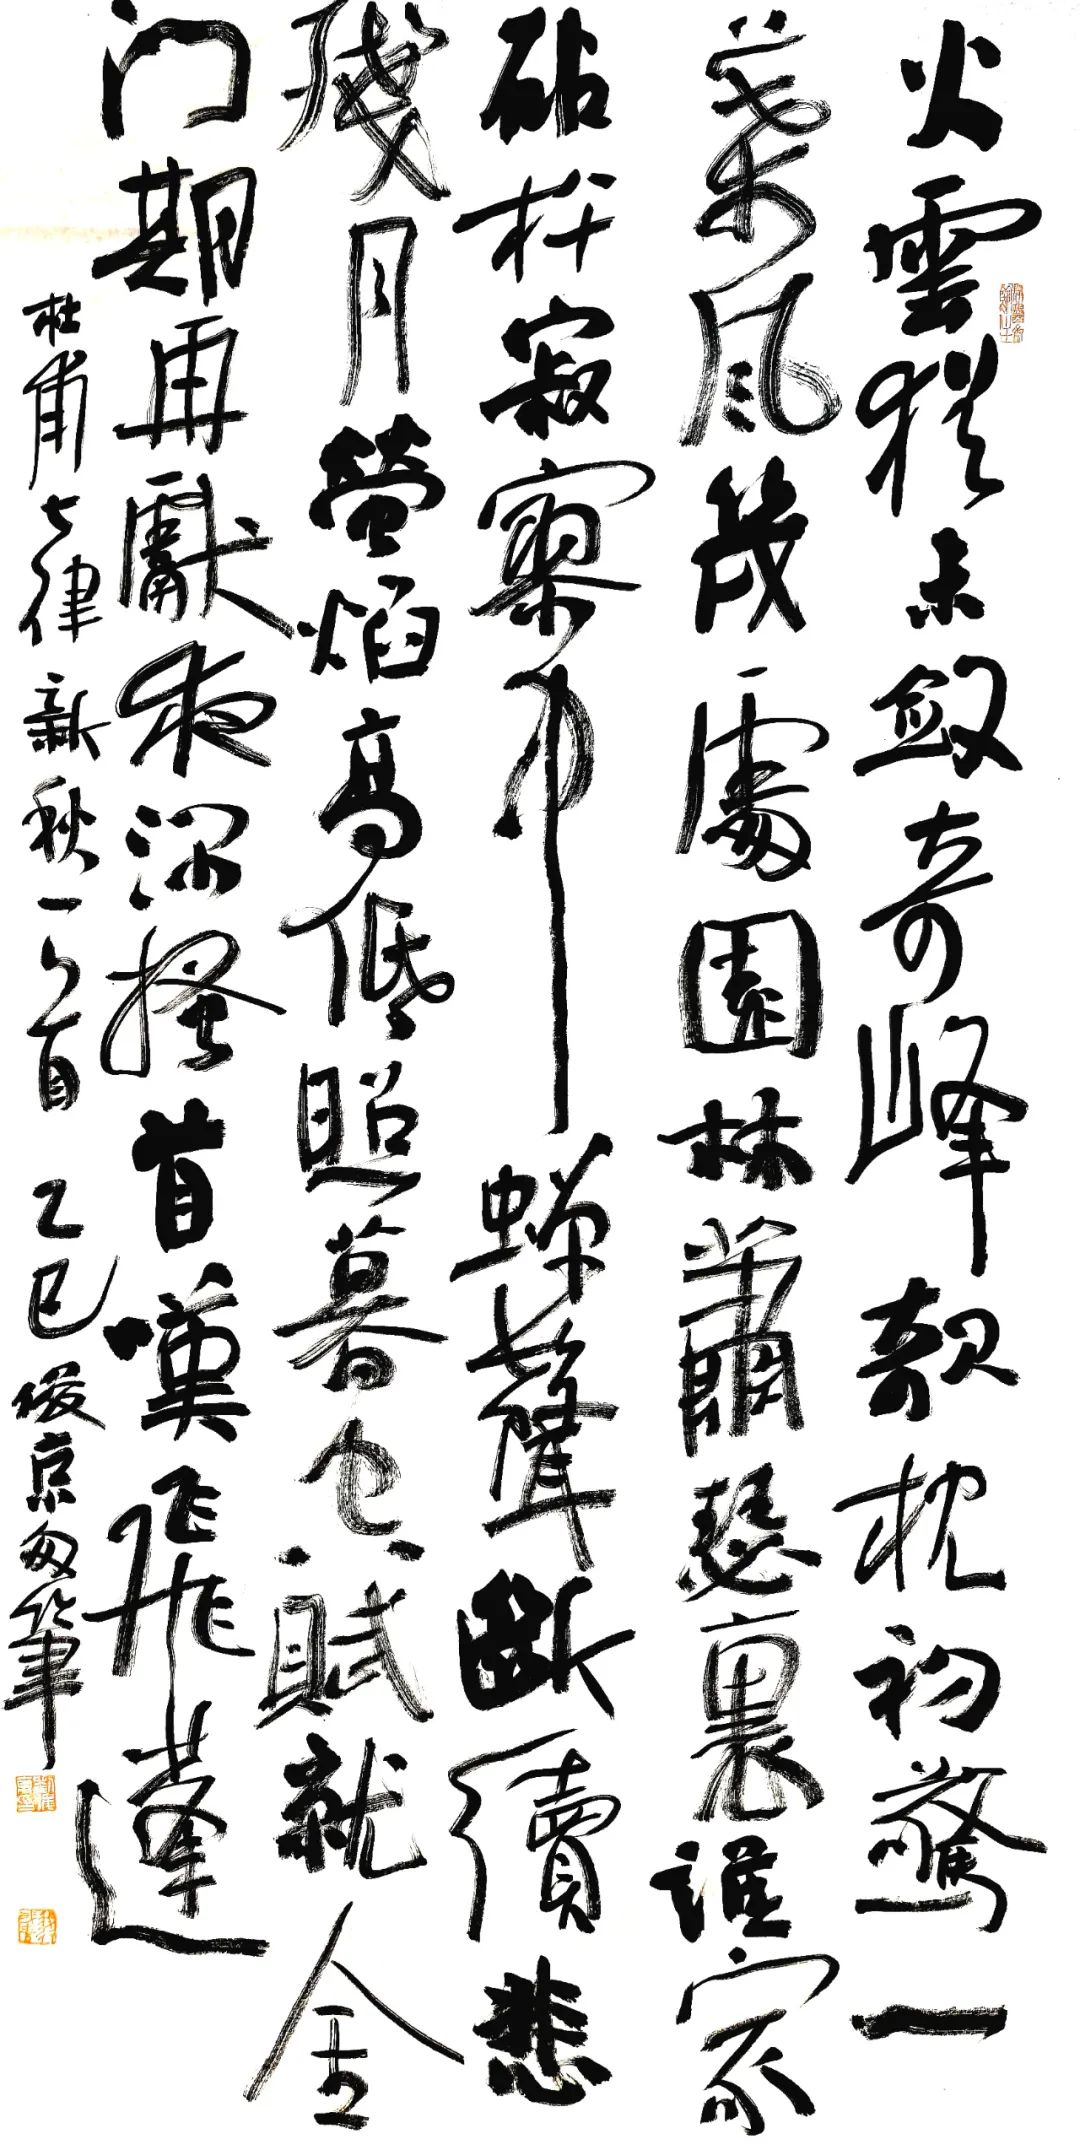 火雲猶未斂奇峰欹枕初驚一
葉風幾處園林蕭瑟裏誰家
砧杵寂寥中蟬聲斷續悲
殘月螢焰高低照暮空賦就金
门期再獻夜深搔首嘆飛蓬
杜甫七律新秋一首 乙巳 俊京敬筆